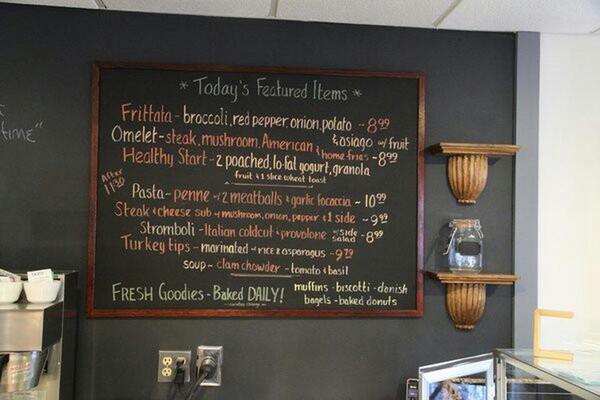 time"
* Today's Featured Items *
Frittata - broccoli, red pepper, onion, potato - 8.99
& asiago w/ fruit
Omelet - steak, mushroom, American & home fries - 8.99
Healthy Start - 2 poached, lo-fat yogurt, granola
fruit & 1 slice wheat toast
After 11:30
Pasta - penne w/ 2 meatballs & garlic focaccia - 10.99
Steak & cheese sub w/ mushroom, onion, pepper & 1 side - 9.99
Stromboli - Italian coldcut & provolone w/ side salad - 8.99
Turkey tips - marinated - w/ rice & asparagus - 9.79
soup - clam chowder - tomato & basil
FRESH Goodies - Baked DAILY!
muffins - biscotti - danish
bagels - baked donuts